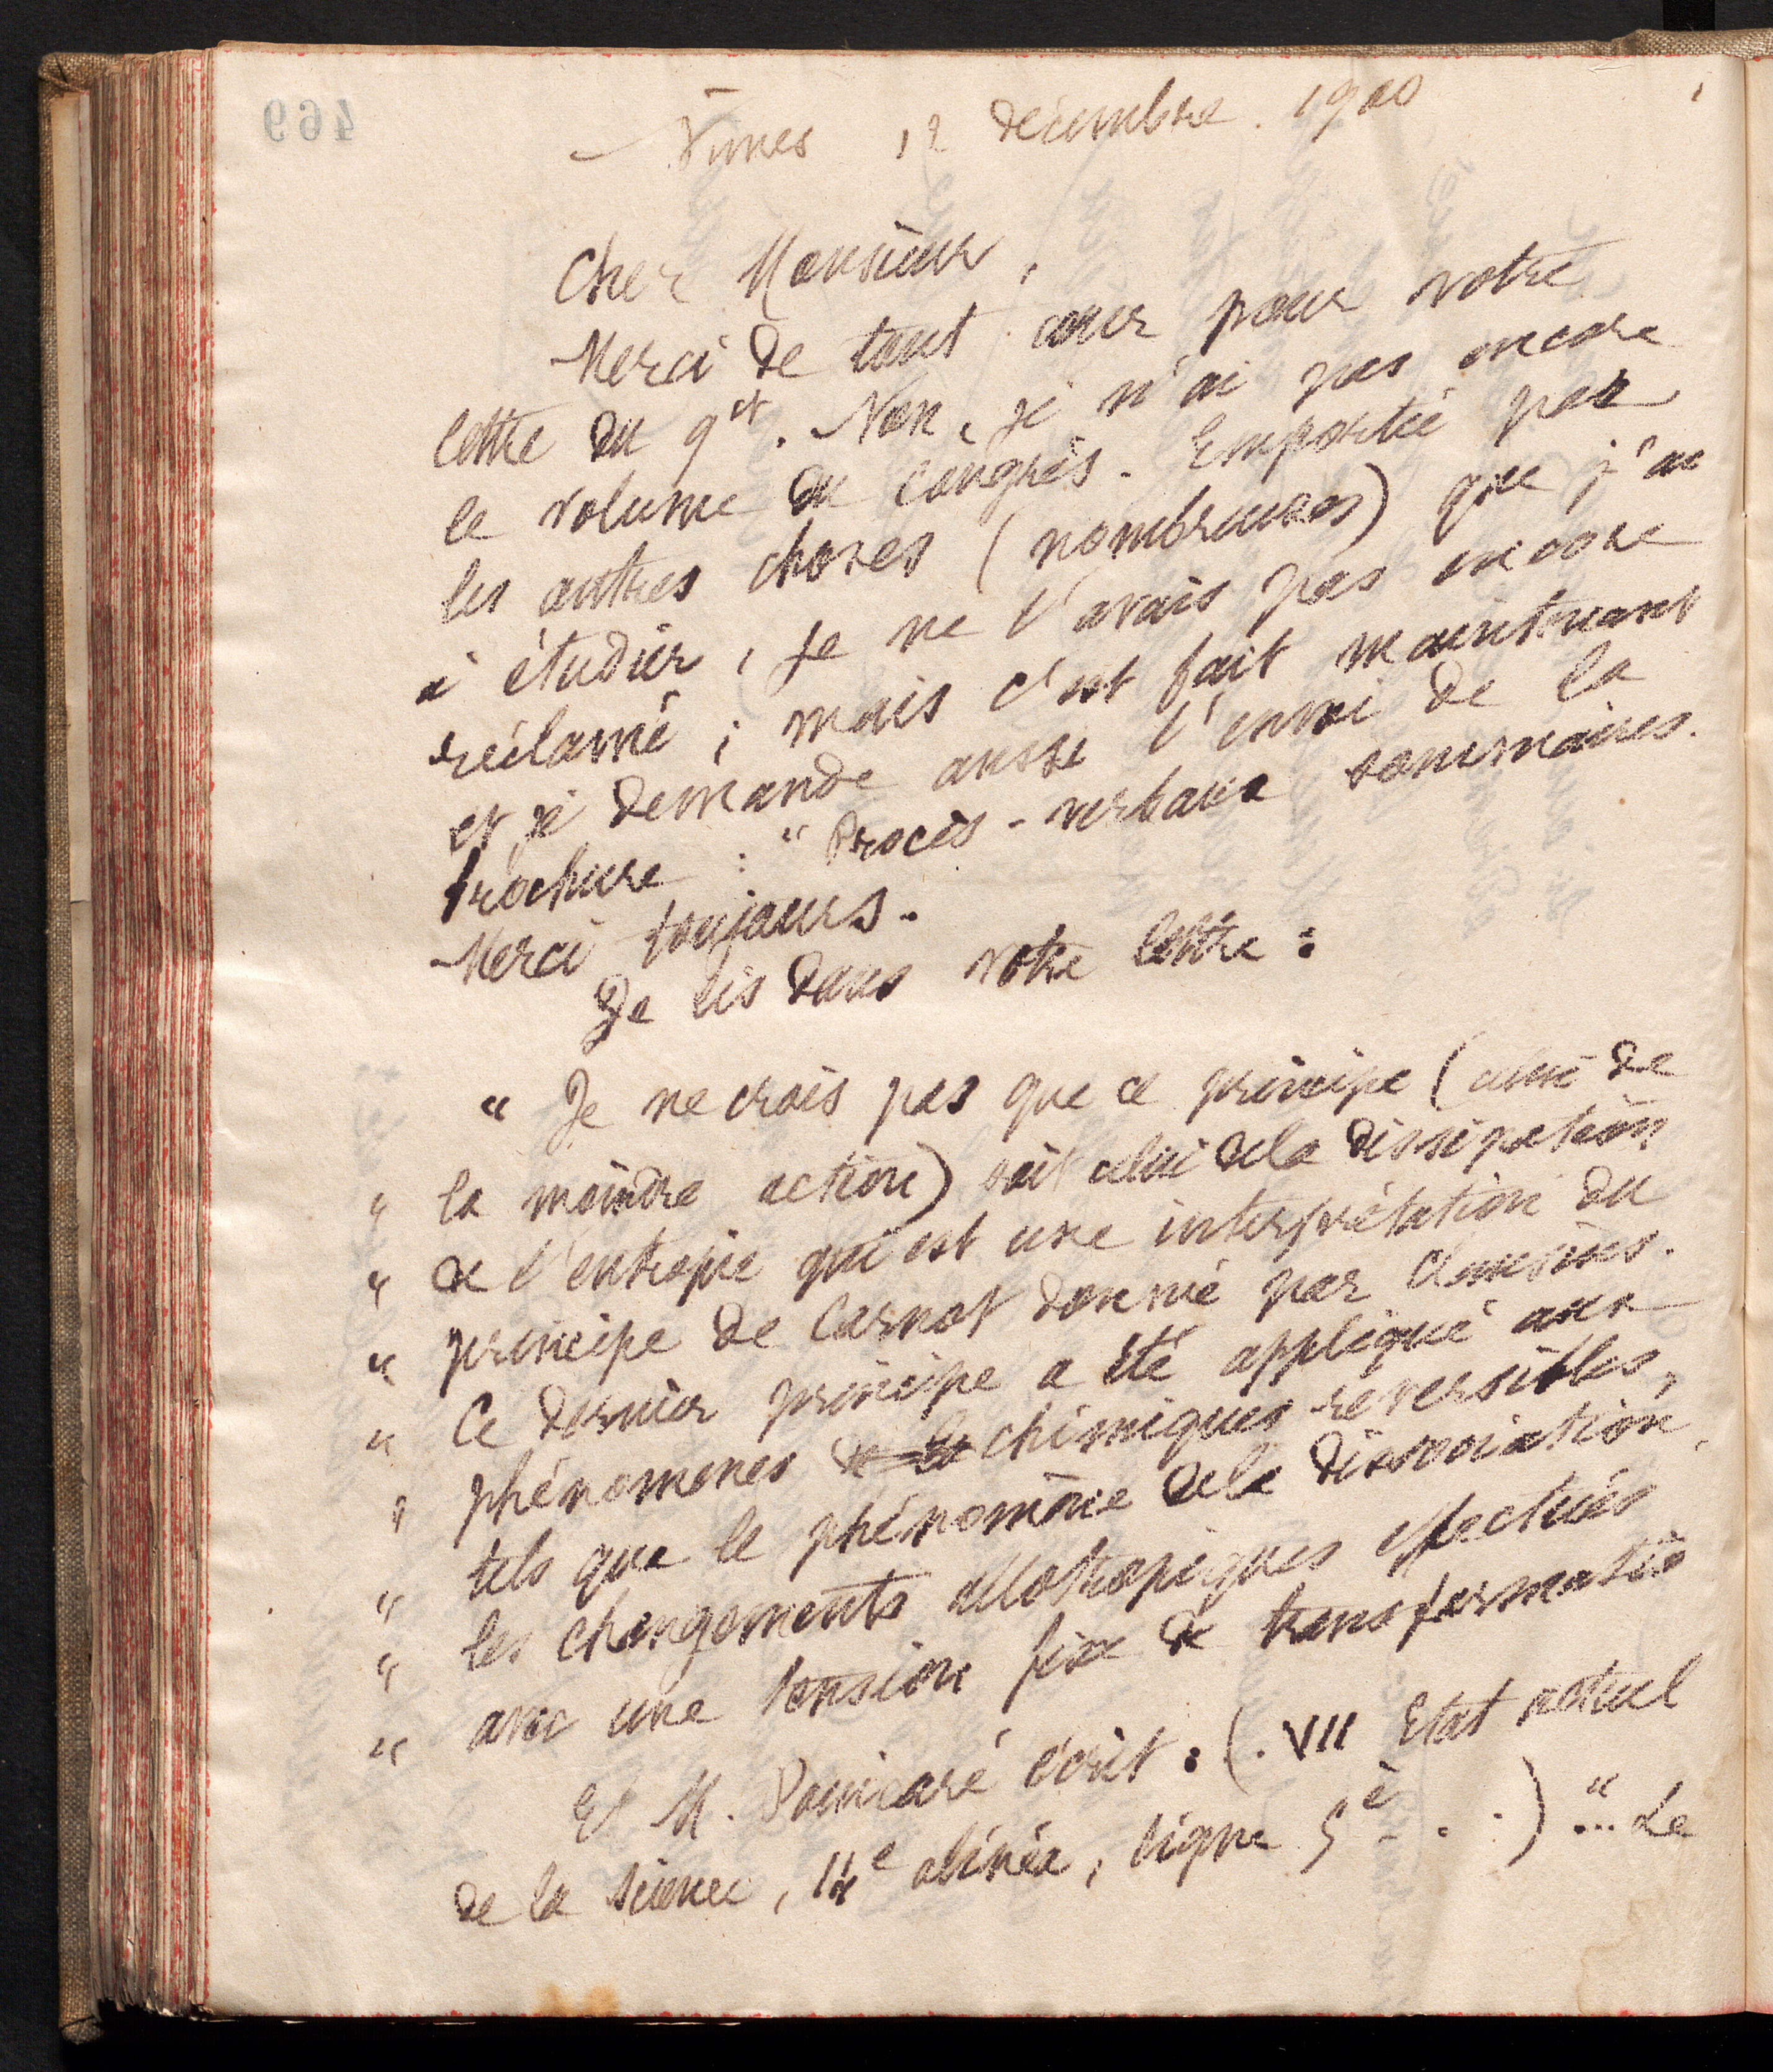 469
Nimes 12 décembre . 1900
Cher Monsieur,
Merci de tout cœur pour votre
lettre du 9 ct. Non, je n'ai pas encore
le volume du congrès. Emporté par
les autres choses (nombreuses) que j'ai
à étudier, je ne l'avais pas encore
réclamé ; mais c'est fait maintenant
et je demande aussi l'envoi de la
brochure : " Procès-verbaux sommaires.
Merci toujours.
Je lis dans votre lettre :
" Je ne crois pas que ce principe (celui de
" la moindre action) soit celui de la dissipation
" de l'entropie qui est une interprétation du
" principe de Carnot donnée par Clausius.
" Ce dernier principe a été appliqué aux
" phénomenes de la chimiques reversibles,
" tels que le phénomène de la dissociation,
" les changements allotropiques effectués
" avec une tension fixe de transformatio
Et M. Poincaré écrit : (. VII Etat actuel
de la science, 14e alinéa, ligne 5è - . . ) "... Le